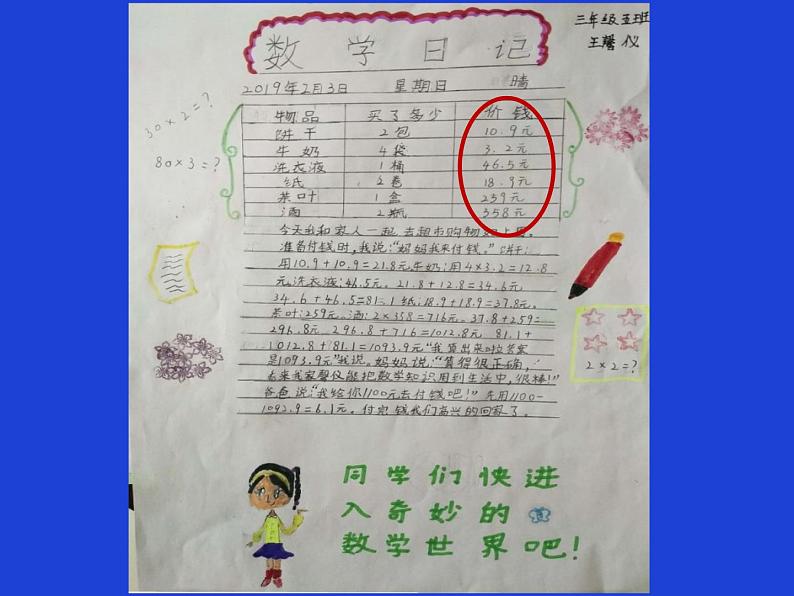 三年级五班
王馨仪
数学日记
2019年2月3日 星期日 晴
物品 买了多少 价钱
饼干 2包 10.9元
牛奶 4袋 3.2元
洗衣液 1桶 46.5元
纸 2卷 18.9元
茶叶 1盒 259元
酒 2瓶 358元
30×2=?
80×3=?
今天我和家人一起去超市购物如上图。
准备付钱时,我说:“妈妈我来付钱。”饼干:
用10.9+10.9=21.8元,牛奶:用4×3.2=12.8
元,洗衣液:46.5元。21.8+12.8=34.6元
34.6+46.5=81.1 纸:18.9+18.9=37.8元。
茶叶:259元。酒:2×358=716元。37.8+259=
296.8元 296.8+716=1012.8元 81.1+
1012.8+81.1=1093.9元“我算出来啦答案
是1093.9元”我说。妈妈说:“算得很正确,
去来我家馨仪能把数学知识用到生活中,很棒!”
爸爸说:“我给你1100元去付钱吧!”先用1100-
1093.9=6.1元。付完钱我们高兴的回家了。
2×2=?
同学们快进
入奇妙的
数学世界吧!